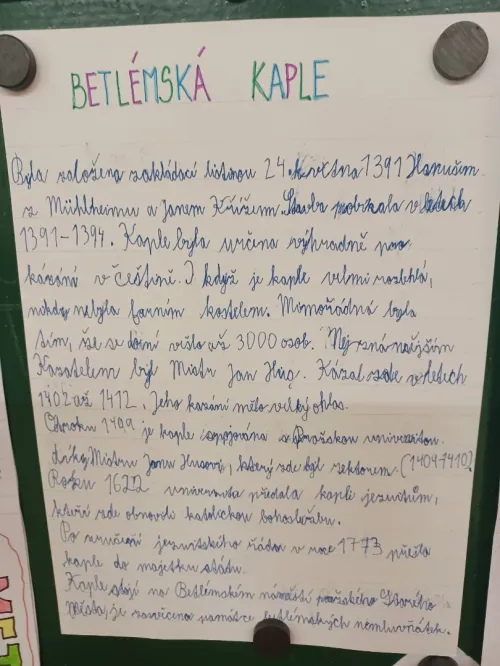 BETLÉMSKÁ KAPLE
Byla založena zakládací listinou 24. května 1391 Hanušem
z Mühlheimu a Janem Křížem. Stavba probíhala v letech
1391-1394. Kaple byla určena výhradně pro
kázání v češtině. I když je kaple velmi rozlehlá,
nikdy nebyla farním kostelem. Mimořádná byla
tím, že se do ní vešlo až 3000 osob. Nejznámějším
Kazatelem byl Mistr Jan Hus. Kázal zde v letech
1402 až 1412. Jeho kázání mělo velký ohlas.
Od roku 1409 je kaple spojována s Pražskou univerzitou
díky Mistru Janu Husovi, který zde byl rektorem. (1409-1410)
Roku 1622 univerzita předala kapli jezuitům,
kteří zde obnovili katolickou bohoslužbu.
Po zrušení jezuitského řádu v roce 1773 přešla
kaple do majetku státu.
Kaple stojí na Betlémském náměstí pražského Starého
Města, je zasvěcena památce betlémských nemluvňátek.